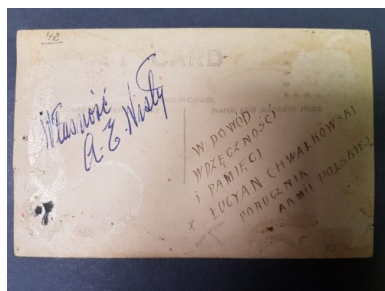 42
CARD
NAME AND ADDRESS HERE
Własność
A. E. Wisły
W DOWÓD
WDZIĘCZNOŚCI
I PAMIĘCI
ŁUCYAN CHWAŁKOWSKI
PORUCZNIK
ARMII POLSKIEJ